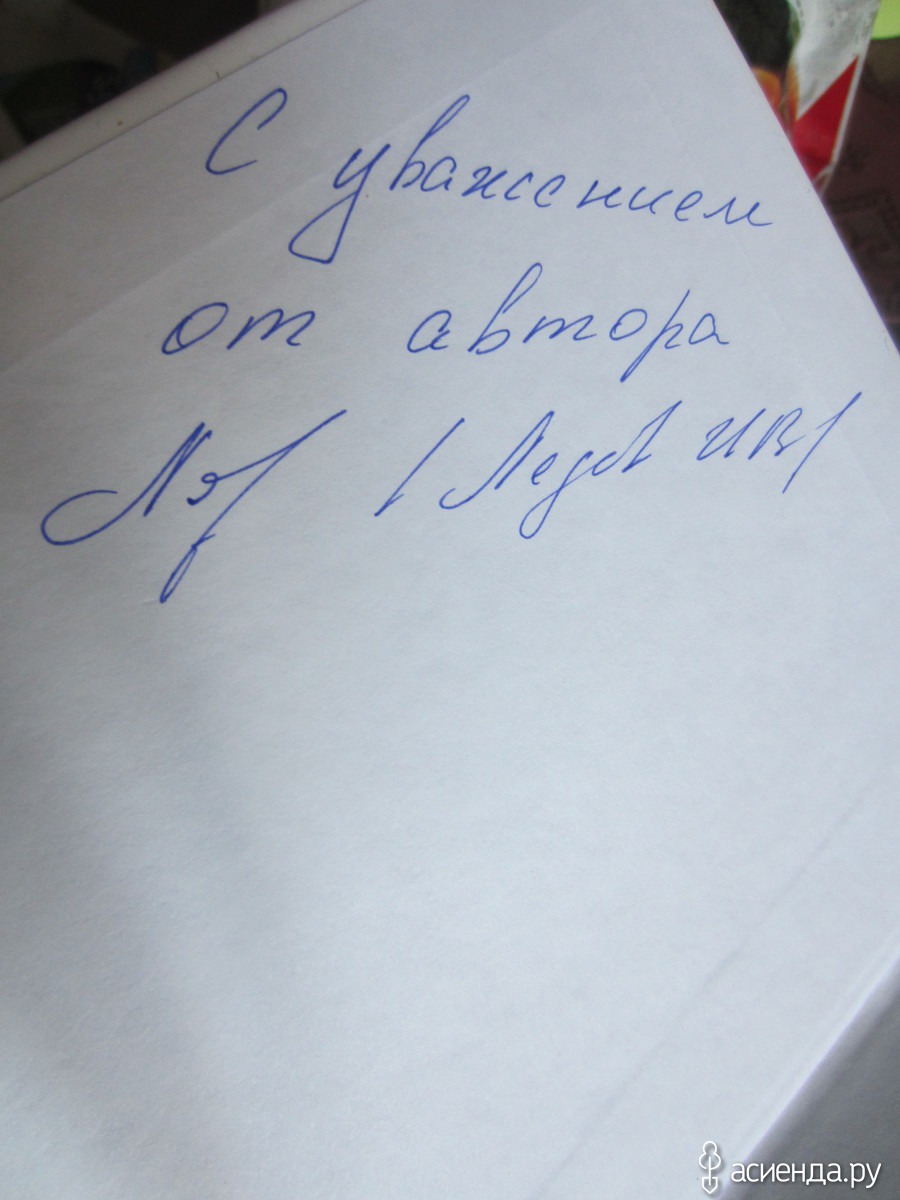 С уважением
от автора
/ Ледов ИВ /
асиенда.ру